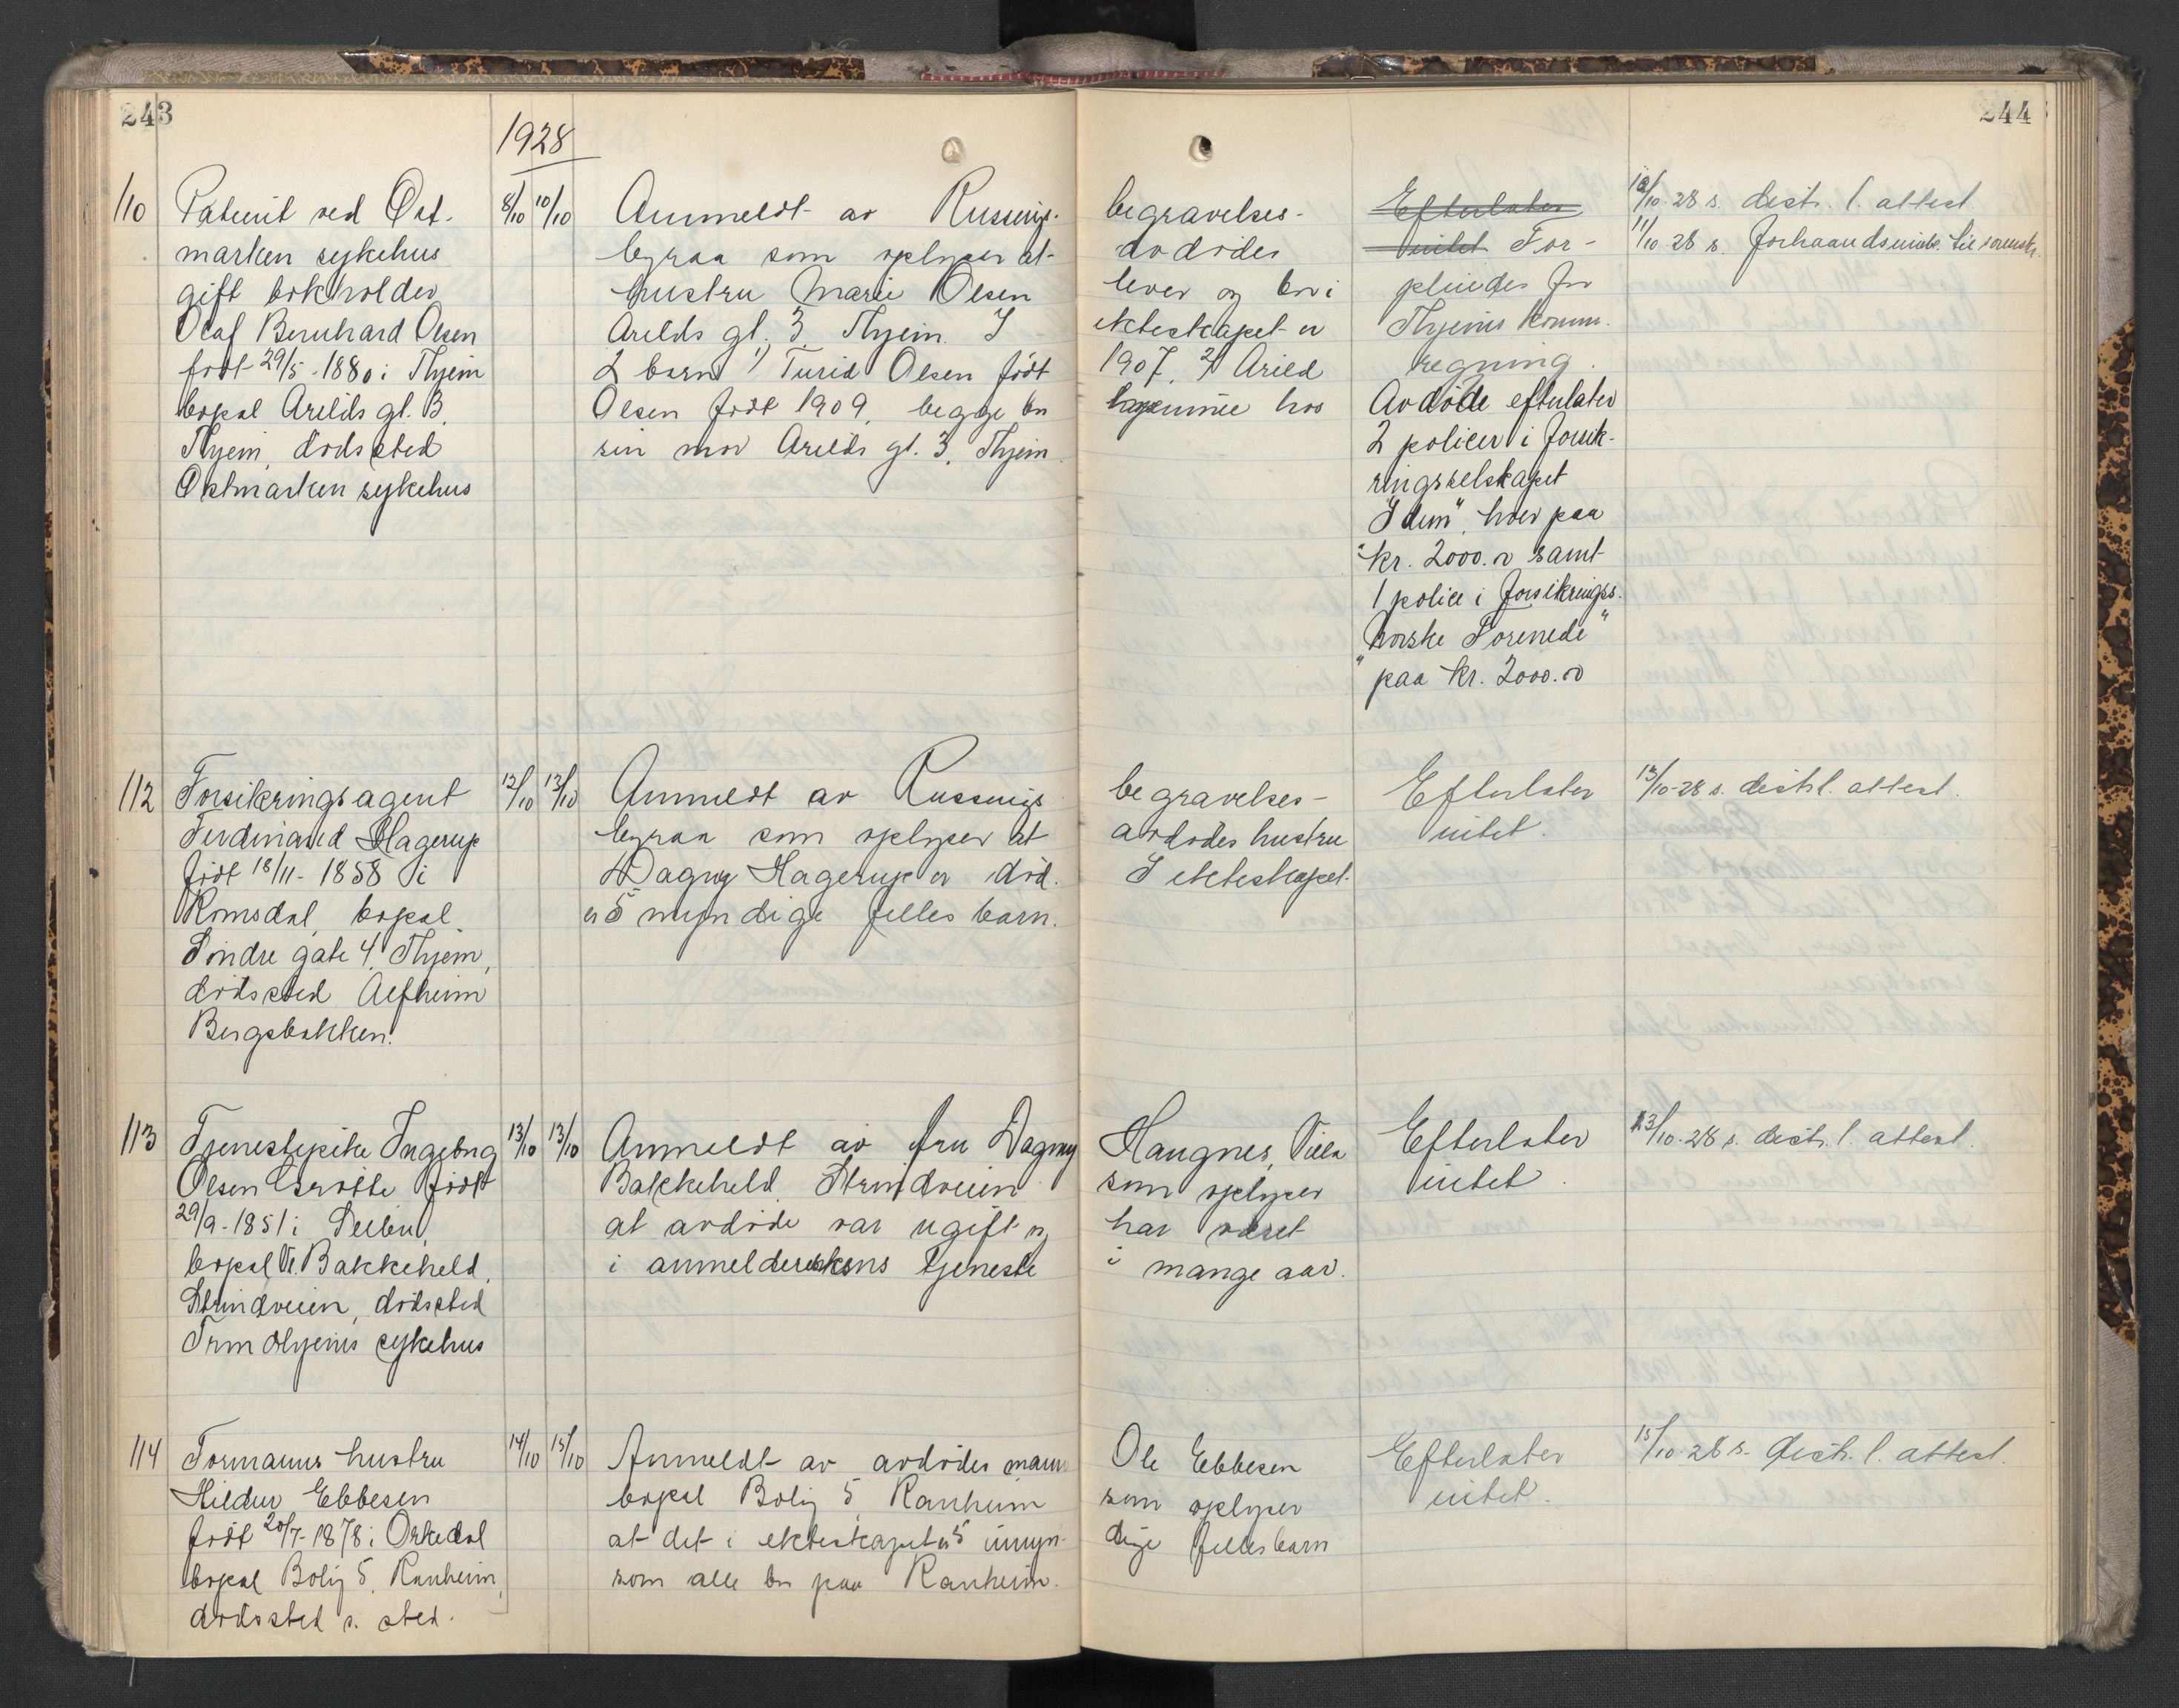 243
244
1928
110
Patient ved Øst-
marken sykehus
gift bokholder
Olaf Bernhard Olsen
født 29/5-1880 i Thjem
bopæl Arilds gt. 3,
Thjem, dødssted
Østmarken sykehus
8/10 10/10
Anmeldt av Russenigs- begravelses-
byraa som oplyser at avdødes
hustru Marie Olsen lever og bor i
Arilds gt. 3, Thjem. I ekteskapet er
2 barn 1) Turid Olsen født 1907, 2) Arild
Olsen født 1909, begge bor hjemme hos
sin mor Arilds gt. 3, Thjem
Efterlater
intet For-
pleiedes for
Thjems komm.
regning.
Avdøde efterlater
2 policer i forsik-
ringsselskapet
"Idun", hver paa
kr. 2000.00 samt
1 police i forsikringss.
"Norske Forenede"
paa kr. 2000.00
10/10-28 s. distr. l. attest
11/10-28 s. forhaandsinnb. til sorensk.
112
Forsikringsagent
Ferdinand Hagerup
født 18/11-1858 i
Romsdal, bopæl
Søndre gate 4, Thjem,
dødssted Alfheim
Bergsbakken.
12/10 13/10
Anmeldt av Russenigs begravelses-
byraa som oplyser at avdødes hustru
Dagny Hagerup er død. I ekteskapet
er 5 myndige felles barn.
Efterlater
intet.
13/10-28 s. distr. l. attest.
113
Tjenestepike Ingeborg
Olsen Grøtte født
29/9-1851 i Selbu,
bopæl V. Bakkeheld,
Strindveien, dødssted
Trondhjems sykehus
13/10 13/10
Anmeldt av fru Dagny Haugnes, Villa
Bakkeheld, Strindveien som oplyser
at avdøde var ugift og har været
i anmelderskens tjeneste i mange aar.
Efterlater
intet.
13/10-28 s. distr. l. attest.
114
Formanns hustru
Hildur Ebbesen
født 20/7-1878 i Orkedal
bopæl Bolig 5, Ranheim,
dødssted s. sted.
14/10 15/10
Anmeldt av avdødes mann Ole Ebbesen
bopæl Bolig 5, Ranheim som oplyser
at det i ekteskapet er 5 umyn- dige felles barn
som alle bor paa Ranheim.
Efterlater
intet.
15/10-28 s. distr. l. attest.